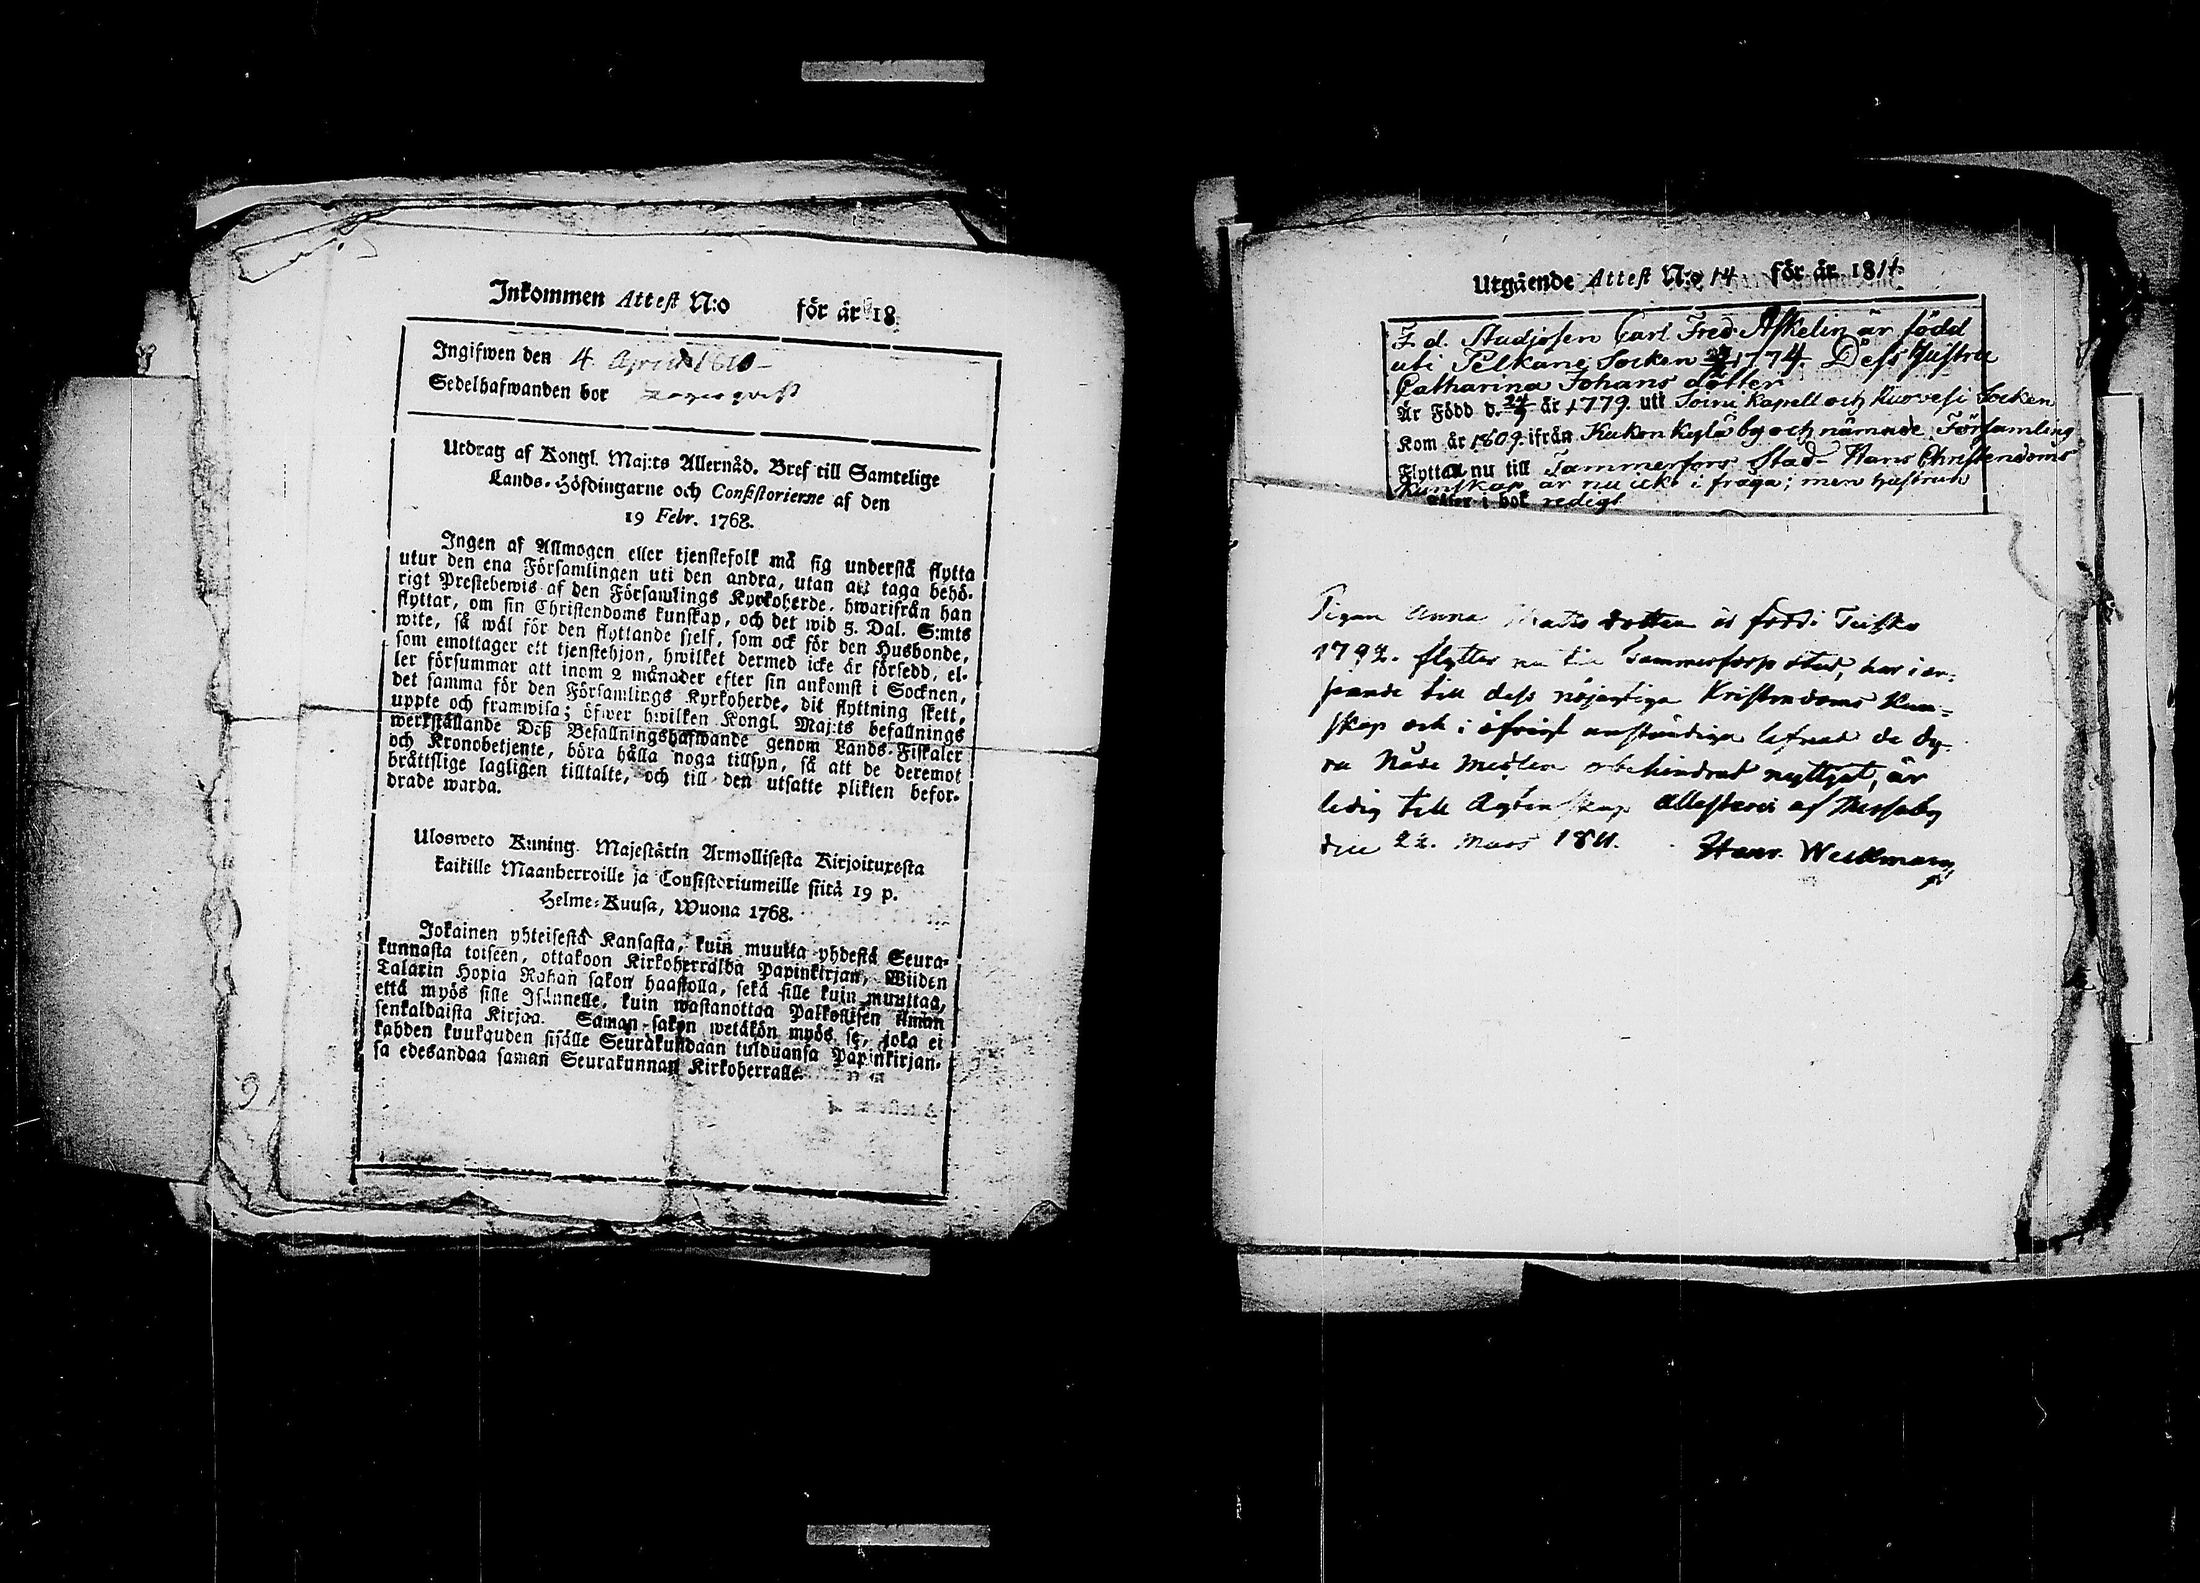 Inkommen Attest N:o för år 18
Ingifwen den 4 April 1810
Sedelhafwanden bor
Utdrag af Kongl. Maj:ts Allernåd. Bref till Samtelige
Lands-Höfdingarne och Consistorierne af den
19 Febr. 1768.
Ingen af Allmogen eller tjenstefolk må sig understå flytta
utur den ena Församlingen uti den andra, utan att taga behö-
rigt Prestebewis af den Församlings Kyrkoherde, hwarifrån han
flyttar, om sin Christendoms kunskap, och det wid 5. Dal. S:mts
wite, så wäl för den flyttande sjelf, som ock för den Husbonde,
som emottager ett tjenstehjon, hwilket dermed icke är försedd, el-
ler försummar att inom 2 månader efter sin ankomst i Socknen,
det samma för den Församlings Kyrkoherde, dit flyttning skett,
uppte och framwisa; öfwer hwilken Kongl. Maj:ts befallnings
werkställande Deß Befallningshafwande genom Lands-Fiskaler
och Kronobetjente, böra hålla noga tillsyn, så att de deremot
bråttslige lagligen tilltalte, och till den utsatte plikten befor-
drade warda.
Ulosweto Kuning. Majestätin Armollisesta Kirjoituxesta
kaikille Maanherroille ja Consistoriumeille siitä 19 p.
Helme-Kuusa, Wuona 1768.
Jokainen yhteisestä Kansasta, kuin muutta yhdestä Seura-
kunnasta toiseen, ottakoon Kirkoherralda Papinkirjan, Wiiden
Talarin Hopia Rahan sakon haastolla, sekä sille kuin muuttaa,
että myös sille Isännelle, kuin wastanottaa Palkollisen ilman
senkaldaista Kirjaa. Saman sakon wetäkön myös se, joka ei
kahden kuukauden sisälle Seurakundaan tulduansa Papinkirjan-
sa edesandaa saman Seurakunnan Kirkoherralle.
Utgående Attest N:o 14 för år 1811.
F. d. Studiosen Carl Fred. Askelin är född
uti Pelkane Socken 1774. Dess Hustru
Catharina Johans dotter
Är Född d. 24 år 1779. uti Soini Kapell och Kuovesi Socken
Kom år 1809. ifrån by och nämnde Församling
Flyttar nu till Tammerfors Stad- Hans Christendoms
Kunskap är nu icke i fråga; men Hustrun
i bok redigt
Pigan Anna Mats dotter är född i Teisko
1792. flytter nu till Tammerfors stad, har i an-
seende till dess nöjaktiga Kristendoms Kun-
skap och i öfrigt anständiga lefnad de dy-
ra Nåde Medlen obehindrad nyttjat, är
ledig till Äktenskap Attesterar af Messuby
den 22. Mars 1811. Henr. Weckman